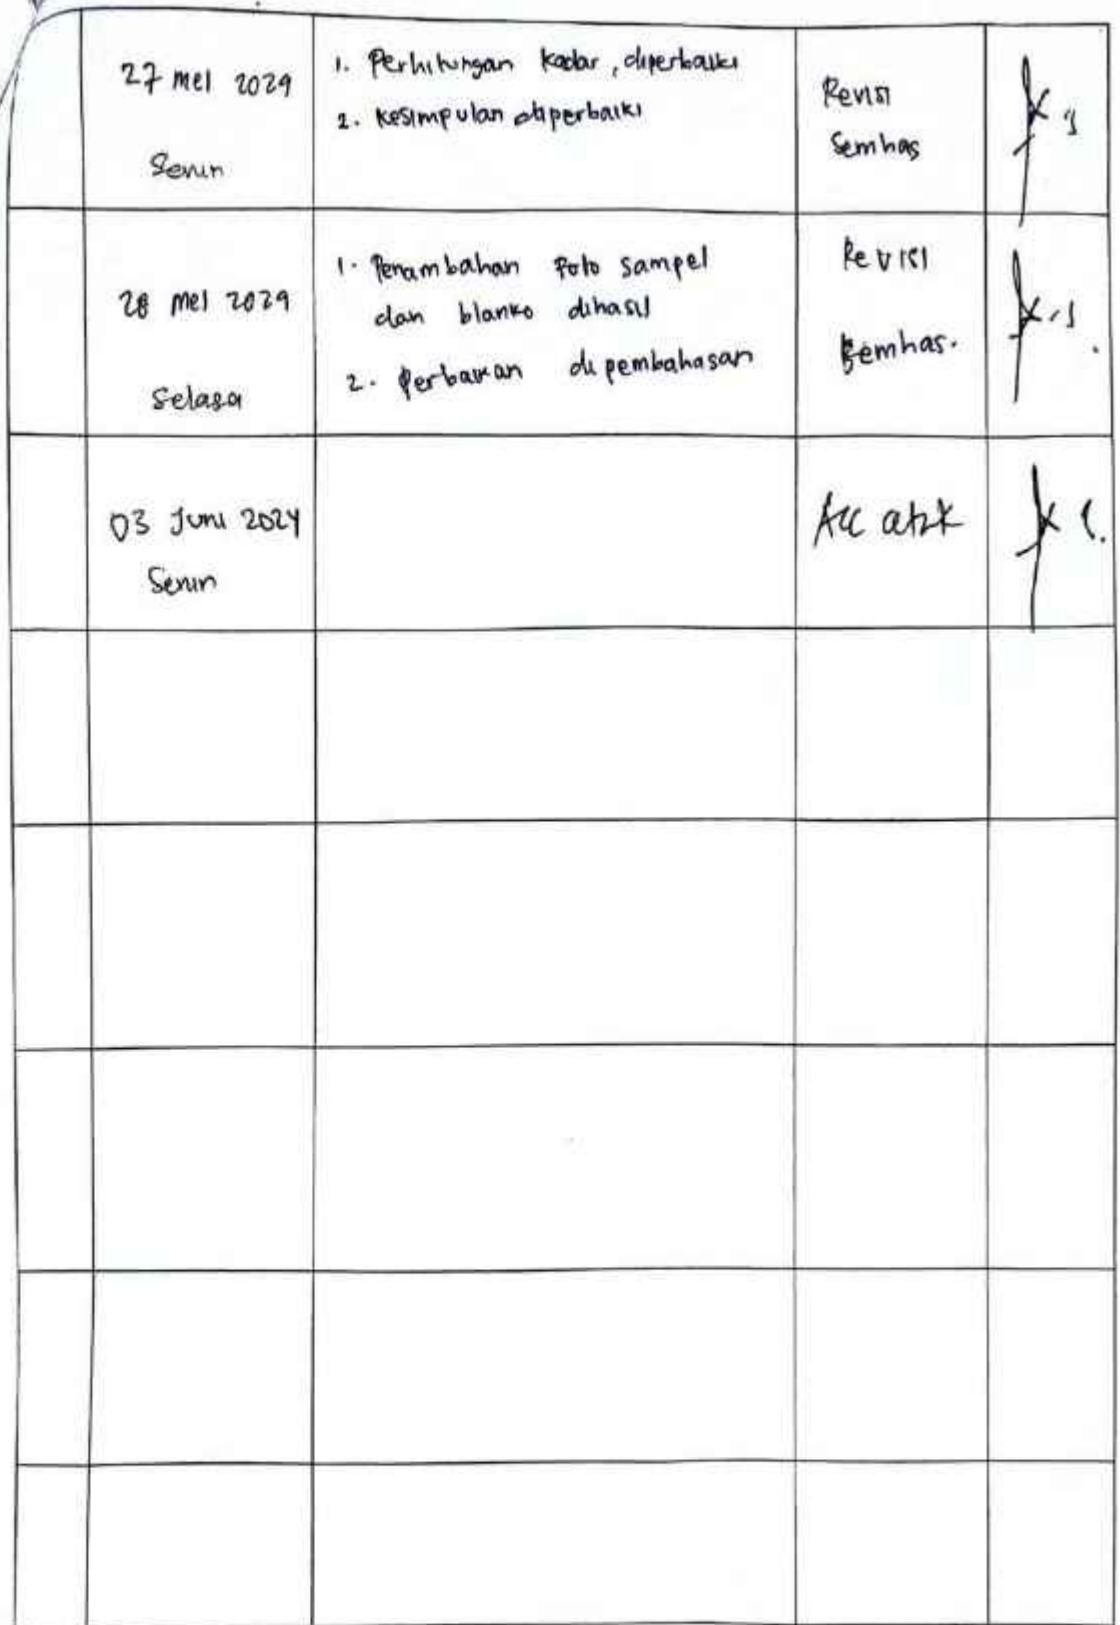 27 Mei 2024
Senin
1. Perhitungan kadar, diperbaiki
2. Kesimpulan diperbaiki
Revisi
Semhas
28 Mei 2024
Selasa
1. Penambahan Foto Sampel
dan blanko dihasil
2. Perbaikan di pembahasan
Revisi
Semhas.
03 Juni 2024
Senin
Acc